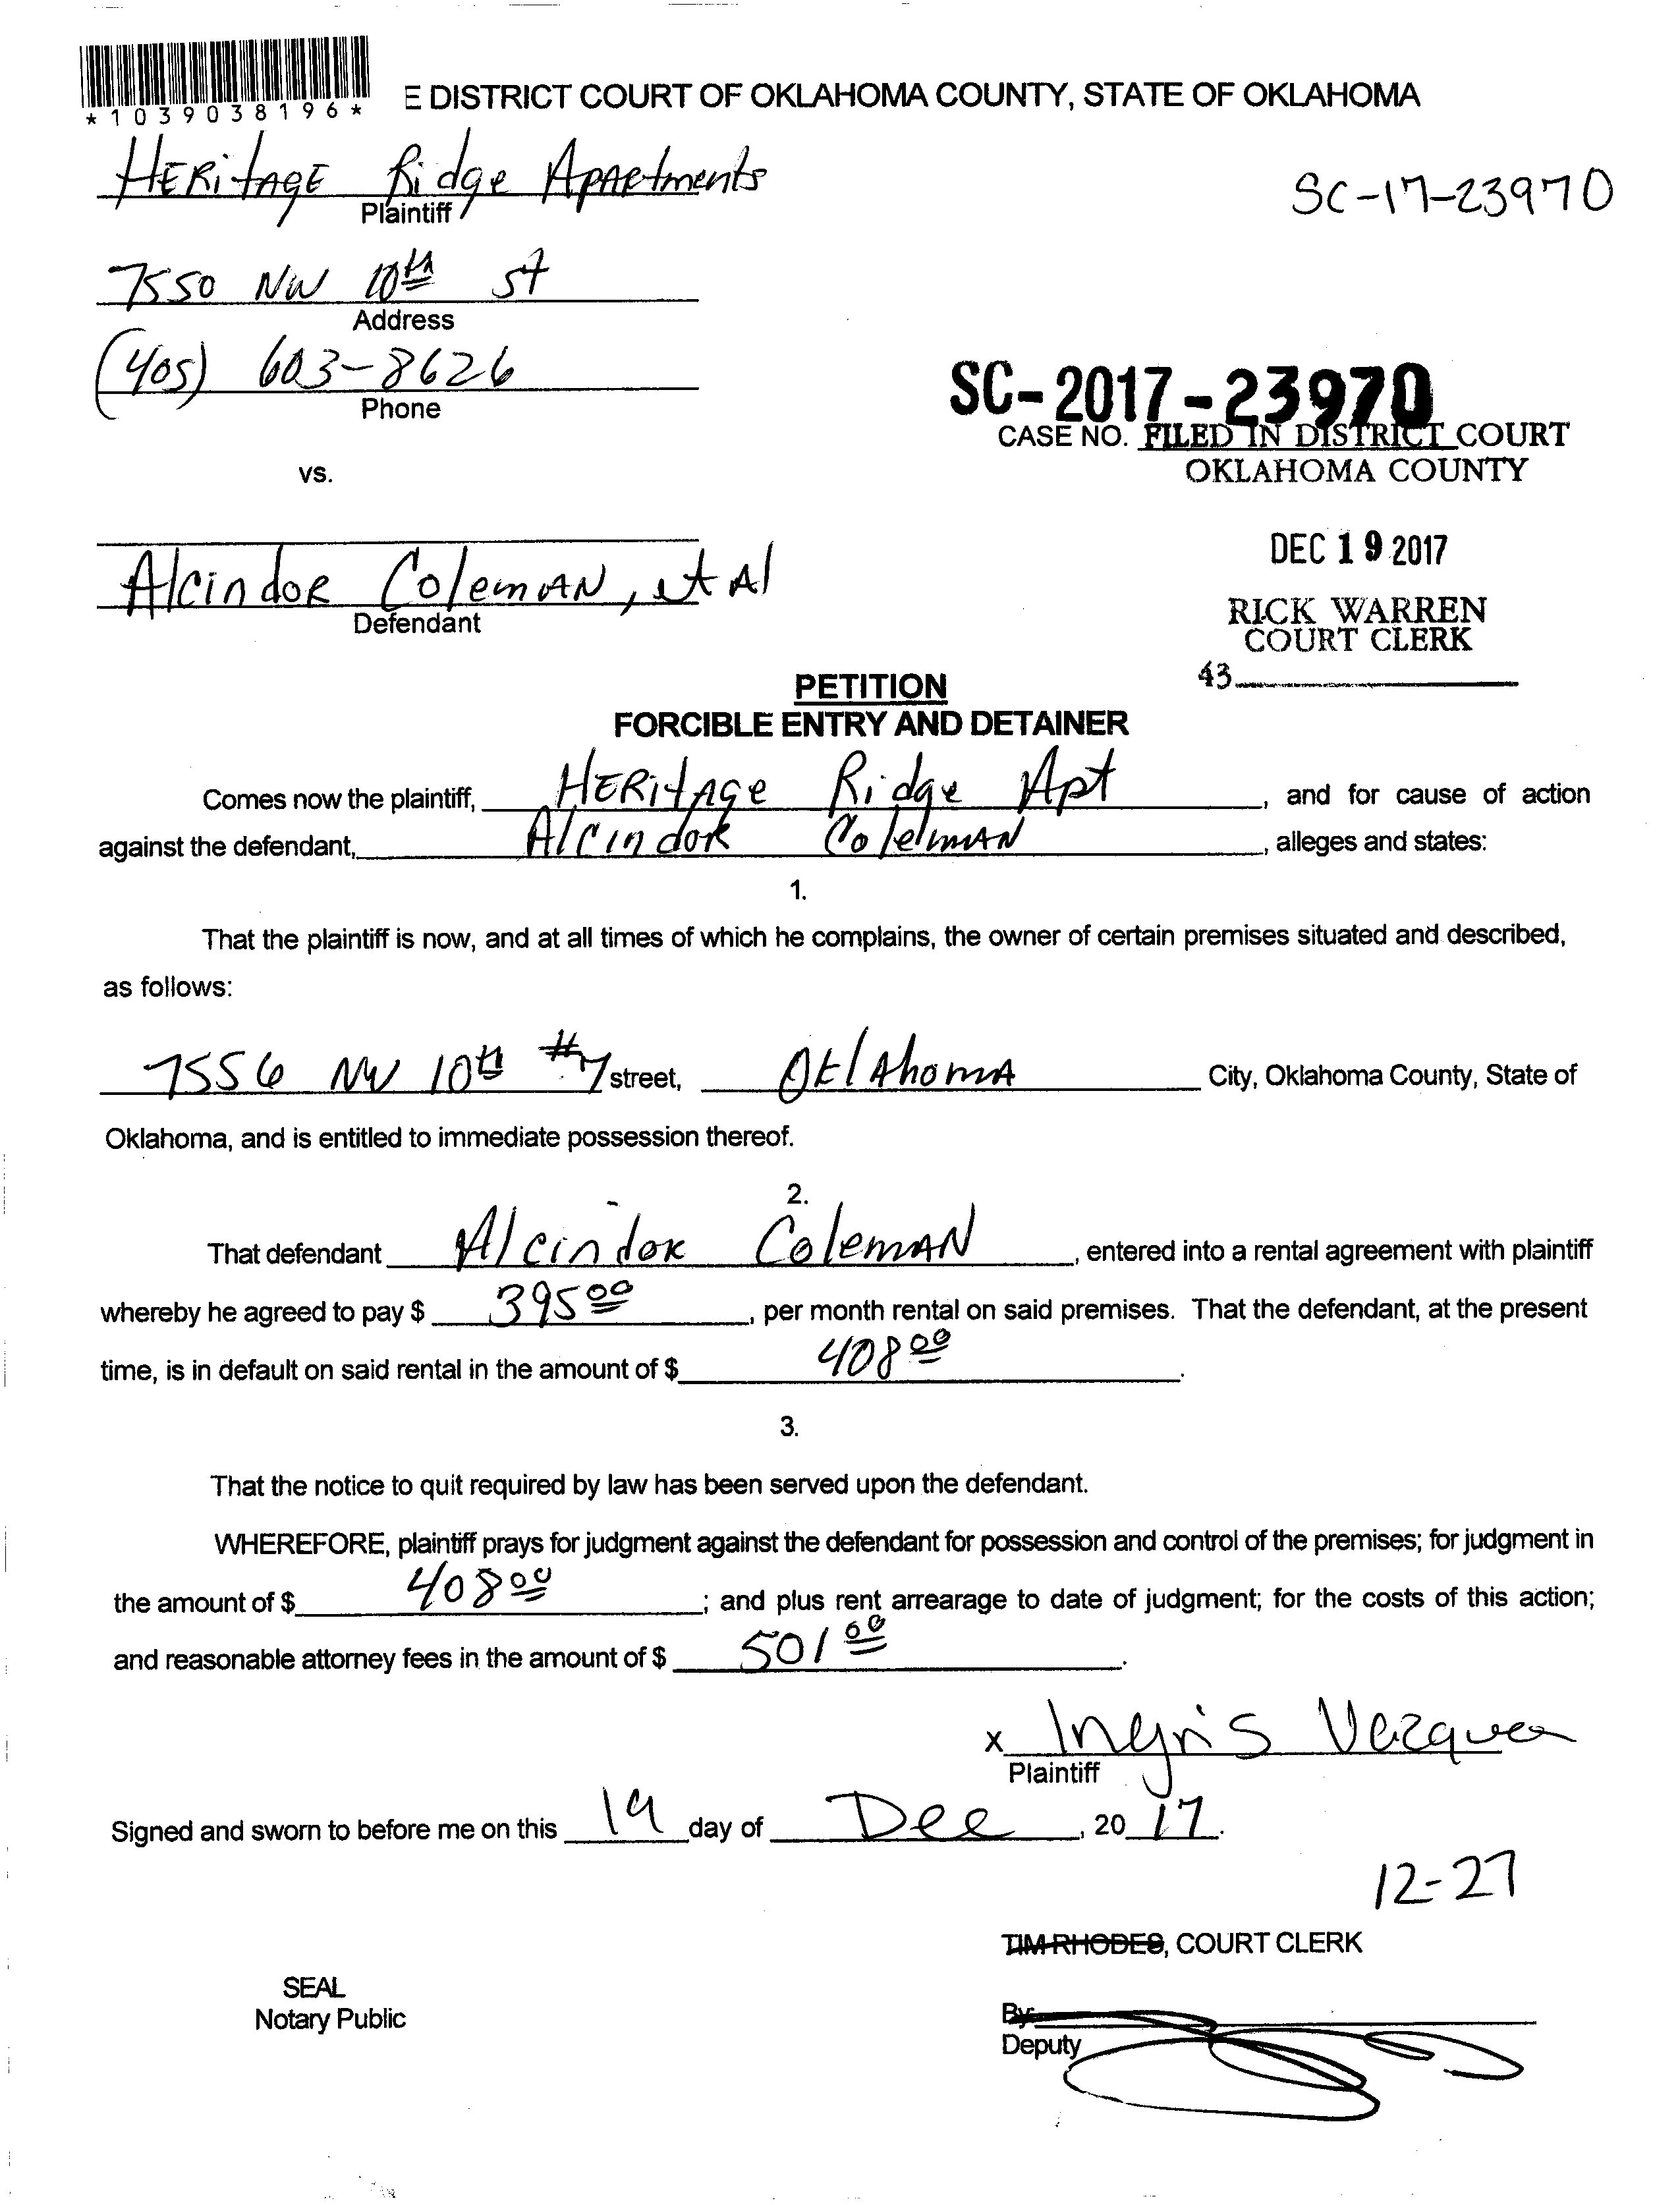 *1039038196*
E DISTRICT COURT OF OKLAHOMA COUNTY, STATE OF OKLAHOMA
HERitAGE Ridge ApARtments
Plaintiff
SC-17-23970
7550 NW 10th St
Address
(405) 603-8626
Phone
SC-2017-23970
CASE NO. FILED IN DISTRICT COURT
OKLAHOMA COUNTY
vs.
DEC 19 2017
Alcindor Coleman, et Al
Defendant
RICK WARREN
COURT CLERK
43
PETITION
FORCIBLE ENTRY AND DETAINER
Comes now the plaintiff, HERitAge Ridge Apt, and for cause of action
against the defendant, Alcindor Coleman, alleges and states:
1.
That the plaintiff is now, and at all times of which he complains, the owner of certain premises situated and described,
as follows:
7556 NW 10th #7 street, OklAhomA City, Oklahoma County, State of
Oklahoma, and is entitled to immediate possession thereof.
2.
That defendant Alcindor Coleman, entered into a rental agreement with plaintiff
whereby he agreed to pay $ 395 00, per month rental on said premises. That the defendant, at the present
time, is in default on said rental in the amount of $ 408 00.
3.
That the notice to quit required by law has been served upon the defendant.
WHEREFORE, plaintiff prays for judgment against the defendant for possession and control of the premises; for judgment in
the amount of $ 408 00; and plus rent arrearage to date of judgment; for the costs of this action;
and reasonable attorney fees in the amount of $ 501 00.
x Ingris Vazquez
Plaintiff
Signed and sworn to before me on this 19 day of Dec, 20 17.
12-27
TIM RHODES, COURT CLERK
SEAL
Notary Public
By:
Deputy